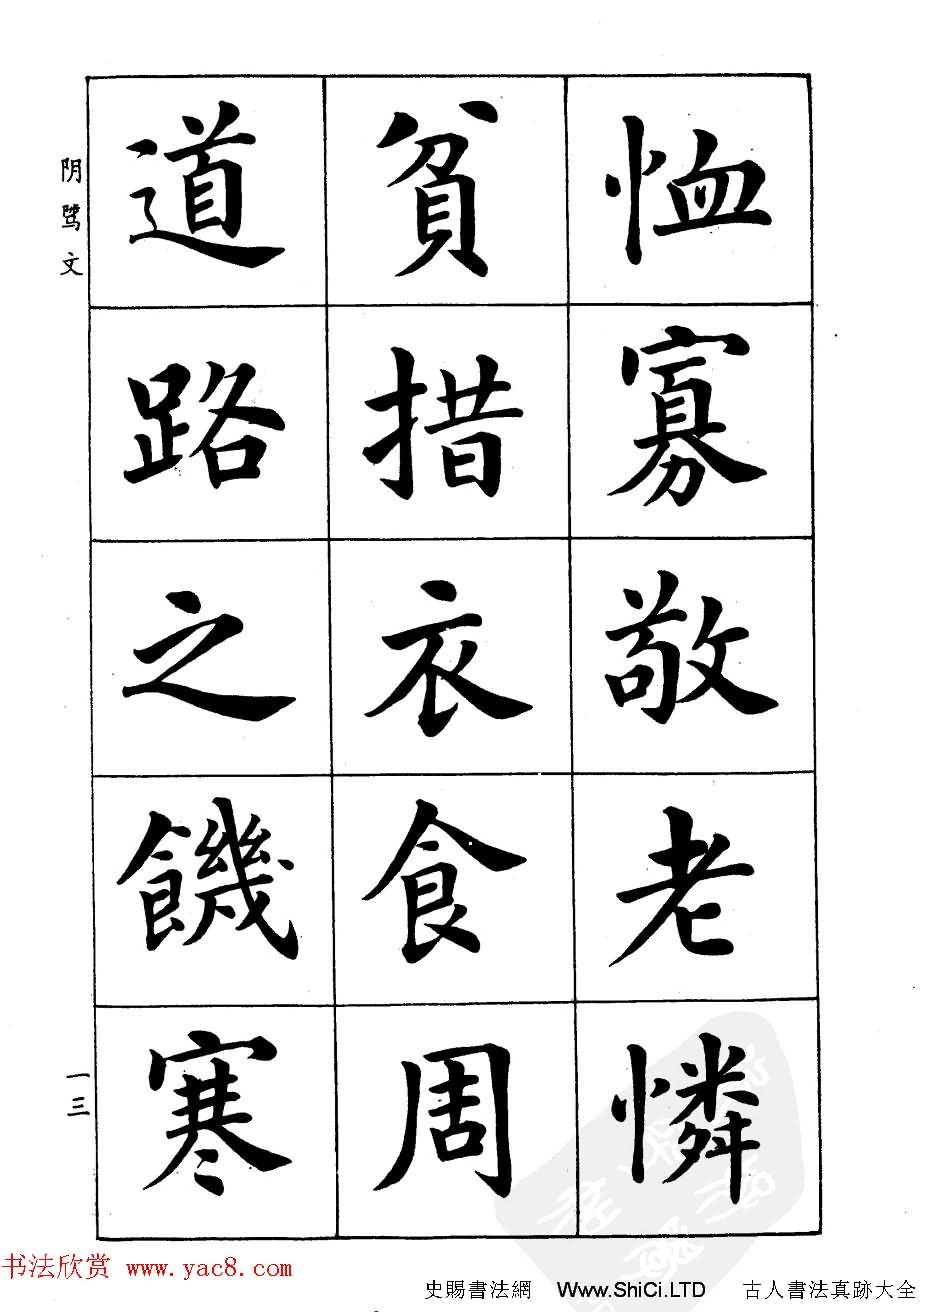 恤寡敬老憐
貧措衣食周
道路之饑寒
阴骘文
一三
书法欣赏 www.yac8.com
史賜書法網 Www.ShiCi.LTD 古人書法真跡大全